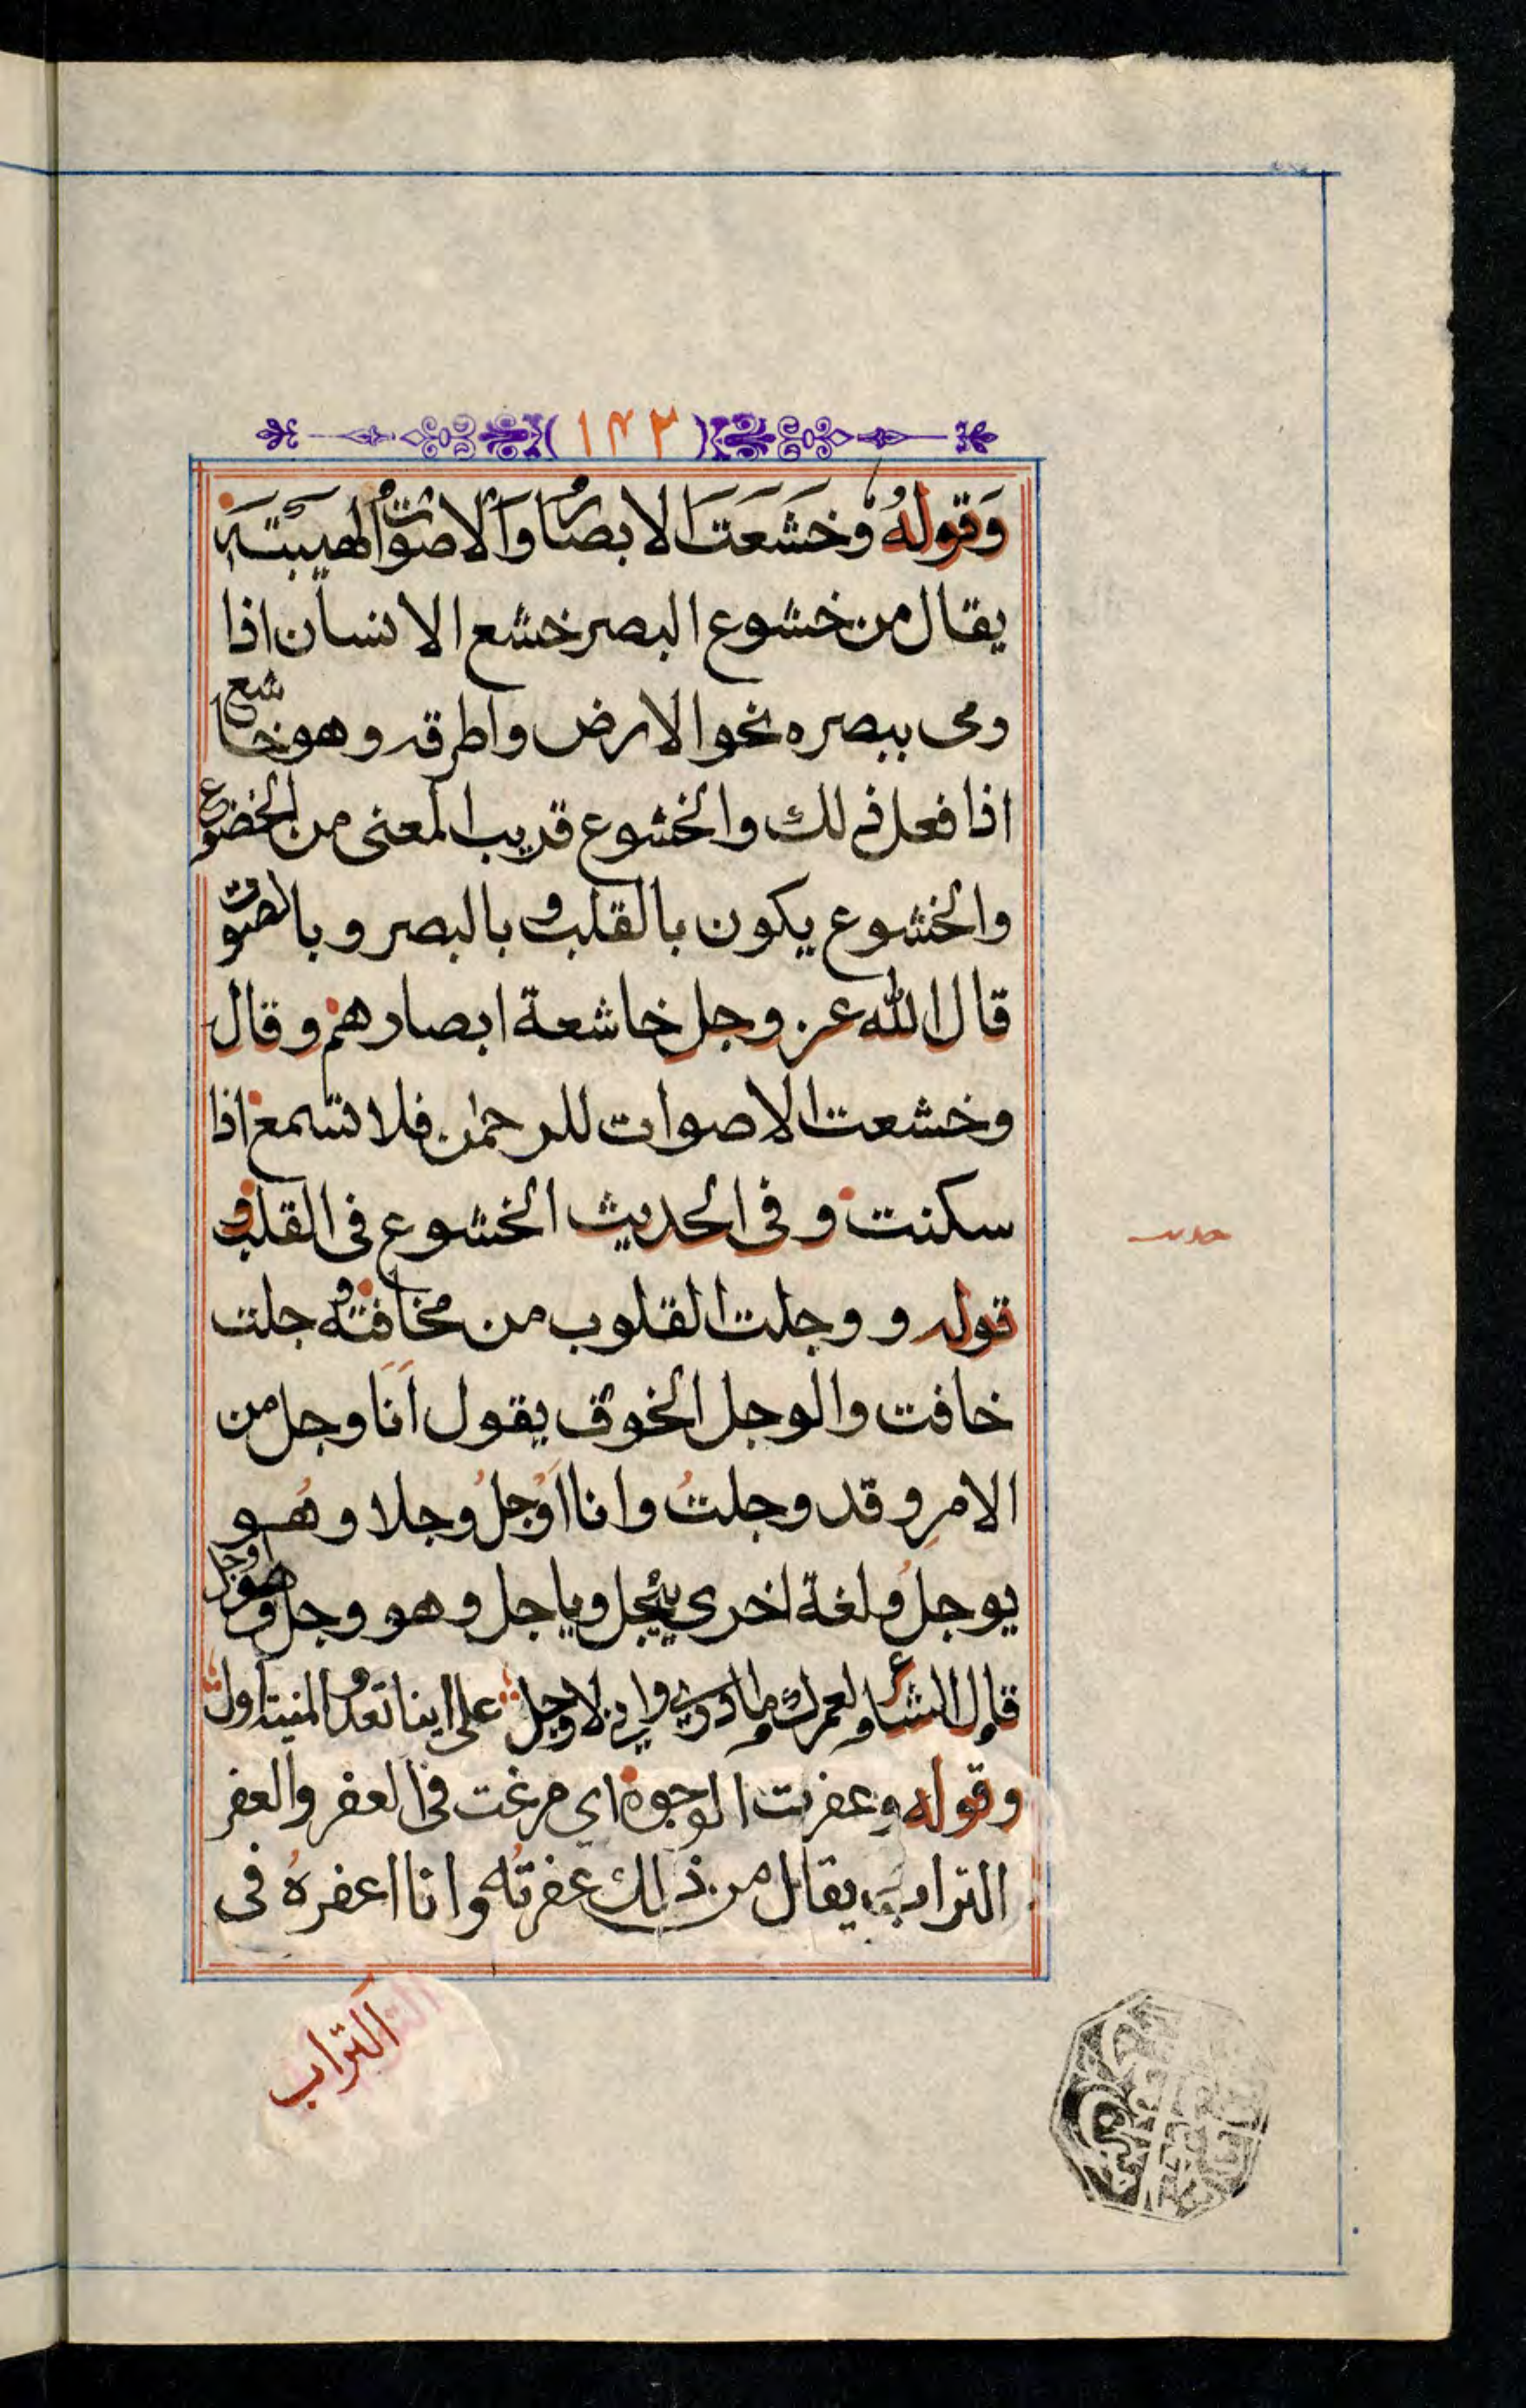 ١٤٢
وَقولهُ وخشَعَتَ الابصارُ وَالاصواتُ لهيبتَهِ
يقال من خشوع البصر خشع الانسان اذا
رمى ببصره نحو الارض واطرقه وهو خاشع
اذا فعل ذلك والخشوع قريب المعنى من الخضوع
والخشوع يكون بالقلب وبالبصر وبالصوت
قال الله عز وجل خاشعة ابصارهم وقال
وخشعت الاصوات للرحمٰن فلا تسمع اذا
سكنت وفى الحديث الخشوع فى القلب و
قوله ووجلت القلوب من مخافته وجلت
خافت والوجل الخوف يقول اَنَا وجل من
الامرِ وقد وجلتُ وانا اَوْجلُ وجلا وهُو
يوجلُ ولغة اخرى ييجل وياجل وهو وجل وهو اوجل
قال الشاعر لعمرك ما ادري واني لاوجل على اينا تعدو المنية اول
وقوله وعفرت الوجوه اى مرغت فى العفر والعفر
التراب يقال من ذلك عفرتُه وانا اعفرهُ فى
التراب
حديث